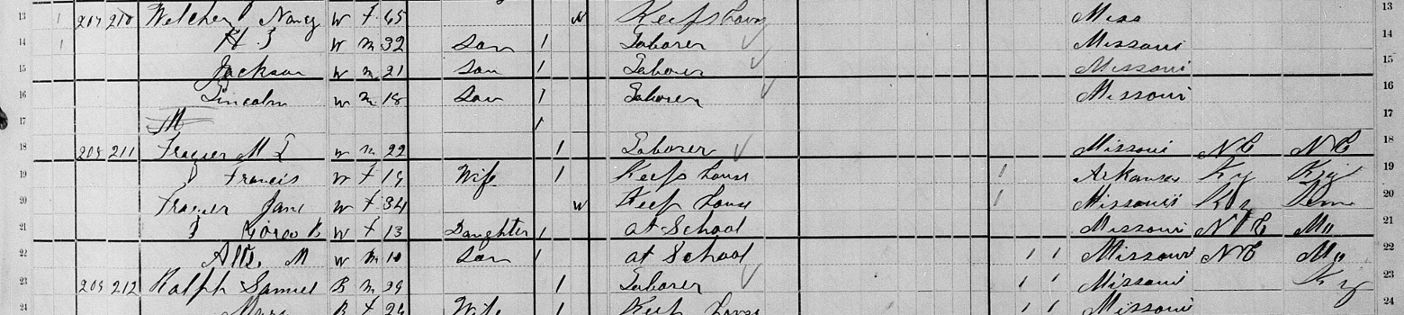 13 1 207 210 Welcher Nancy W F 65 W Keeps house Miss 13
14 1 W M 32 Son 1 Laborer Missouri 14
15 Jackson W M 21 Son 1 Laborer Missouri 15
16 Lincoln W M 18 Son 1 Laborer Missouri 16
17 M 1 17
18 208 211 Frazier M L W M 22 1 Laborer Missouri NC NC 18
19 Francis W F 19 Wife 1 Keeps house 1 Arkansas Ky Ky 19
20 Frazier Jane W F 34 W Keep house 1 Missouri Ky Tenn 20
21 W F 13 Daughter 1 at School Missouri NC Mo 21
22 M W M 10 Son 1 at School 1 1 Missouri NC Mo 22
23 209 212 Ralph Samuel B M 39 1 Laborer 1 1 Missouri Ky 23
24 B F Wife 1 Keep house 1 1 Missouri 24